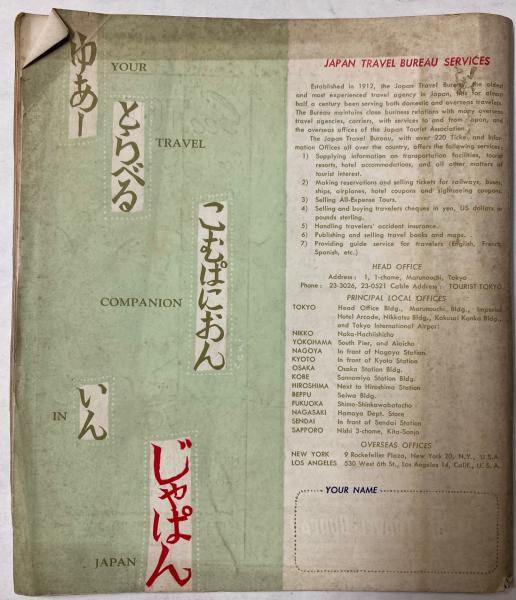 ゆあー
YOUR
とらべる
TRAVEL
こむぱにおん
COMPANION
いん
IN
じゃぱん
JAPAN
JAPAN TRAVEL BUREAU SERVICES
Established in 1912, the Japan Travel Bureau, the oldest
and most experienced travel agency in Japan, has for almost
half a century been serving both domestic and overseas travelers.
The Bureau maintains close business relations with many overseas
travel agencies, carriers, with services to and from Japan, and
the overseas offices of the Japan Tourist Association.
The Japan Travel Bureau, with over 220 Ticket and Infor-
mation Offices all over the country, offers the following services:
1) Supplying information on transportation facilities, tourist
resorts, hotel accommodations, and all other matters of
tourist interest.
2) Making reservations and selling tickets for railways, buses,
ships, airplanes, hotel coupons and sightseeing coupons.
3) Selling All-Expense Tours.
4) Selling and buying travelers cheques in yen, US dollars or
pounds sterling.
5) Handling travelers' accident insurance.
6) Publishing and selling travel books and maps.
7) Providing guide service for travelers (English, French,
Spanish, etc.)
HEAD OFFICE
Address: 1, 1-chome, Marunouchi, Tokyo
Phone: 23-3026, 23-0521 Cable Address: TOURIST-TOKYO
PRINCIPAL LOCAL OFFICES
TOKYO Head Office Bldg., Marunouchi Bldg., Imperial
Hotel Arcade, Nikkatsu Bldg., Kokusai Kanko Bldg.,
and Tokyo International Airport
NIKKO Naka-Hachiishicho
YOKOHAMA South Pier, and Aioicho
NAGOYA In front of Nagoya Station
KYOTO In front of Kyoto Station
OSAKA Osaka Station Bldg.
KOBE Sannomiya Station Bldg.
HIROSHIMA Next to Hiroshima Station
BEPPU Seiwa Bldg.
FUKUOKA Shimo-Shinkawabatacho
NAGASAKI Hamaya Dept. Store
SENDAI In front of Sendai Station
SAPPORO Nishi 3-chome, Kita-Sanjo
OVERSEAS OFFICES
NEW YORK 9 Rockefeller Plaza, New York 20, N.Y., U.S.A.
LOS ANGELES 530 West 6th St., Los Angeles 14, Calif., U.S.A.
YOUR NAME